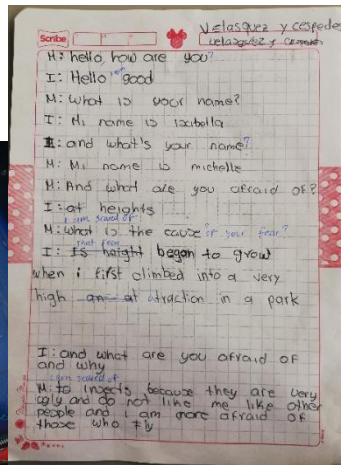 Scribe
Velasquez y cespedes
velasquez y cespedes
M: hello, how are you?
I: Hello I'm good
M: What is your name?
I: Mi name is isabella
I: and what's your name?
M: Mi name is michelle
M: And what are you afraid of?
i am scared of
I: at heights
M: What is the cause of your fear?
that fear
I: Is height began to grow
when i first climbed into a very
high an at atraction in a park
I: and what are you afraid of
and why
i am scared of
M: to insects because they are very
ugly and do not like me like other
people and i am more afraid of
those who fly